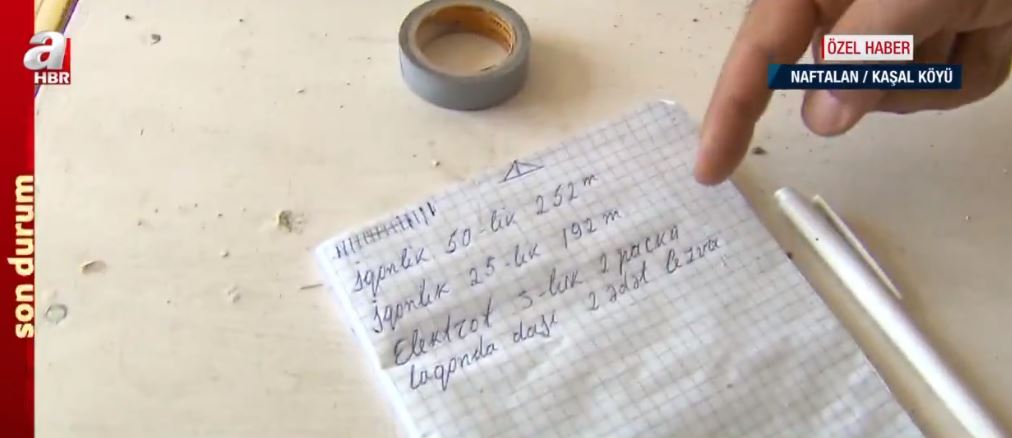 a
HBR
son durum
ÖZEL HABER
NAFTALAN / KAŞAL KÖYÜ
50-lik 252 m
25-lik 192 m
Elektrot 3-lük 2 paçka
daşı 2 ədəd lezva